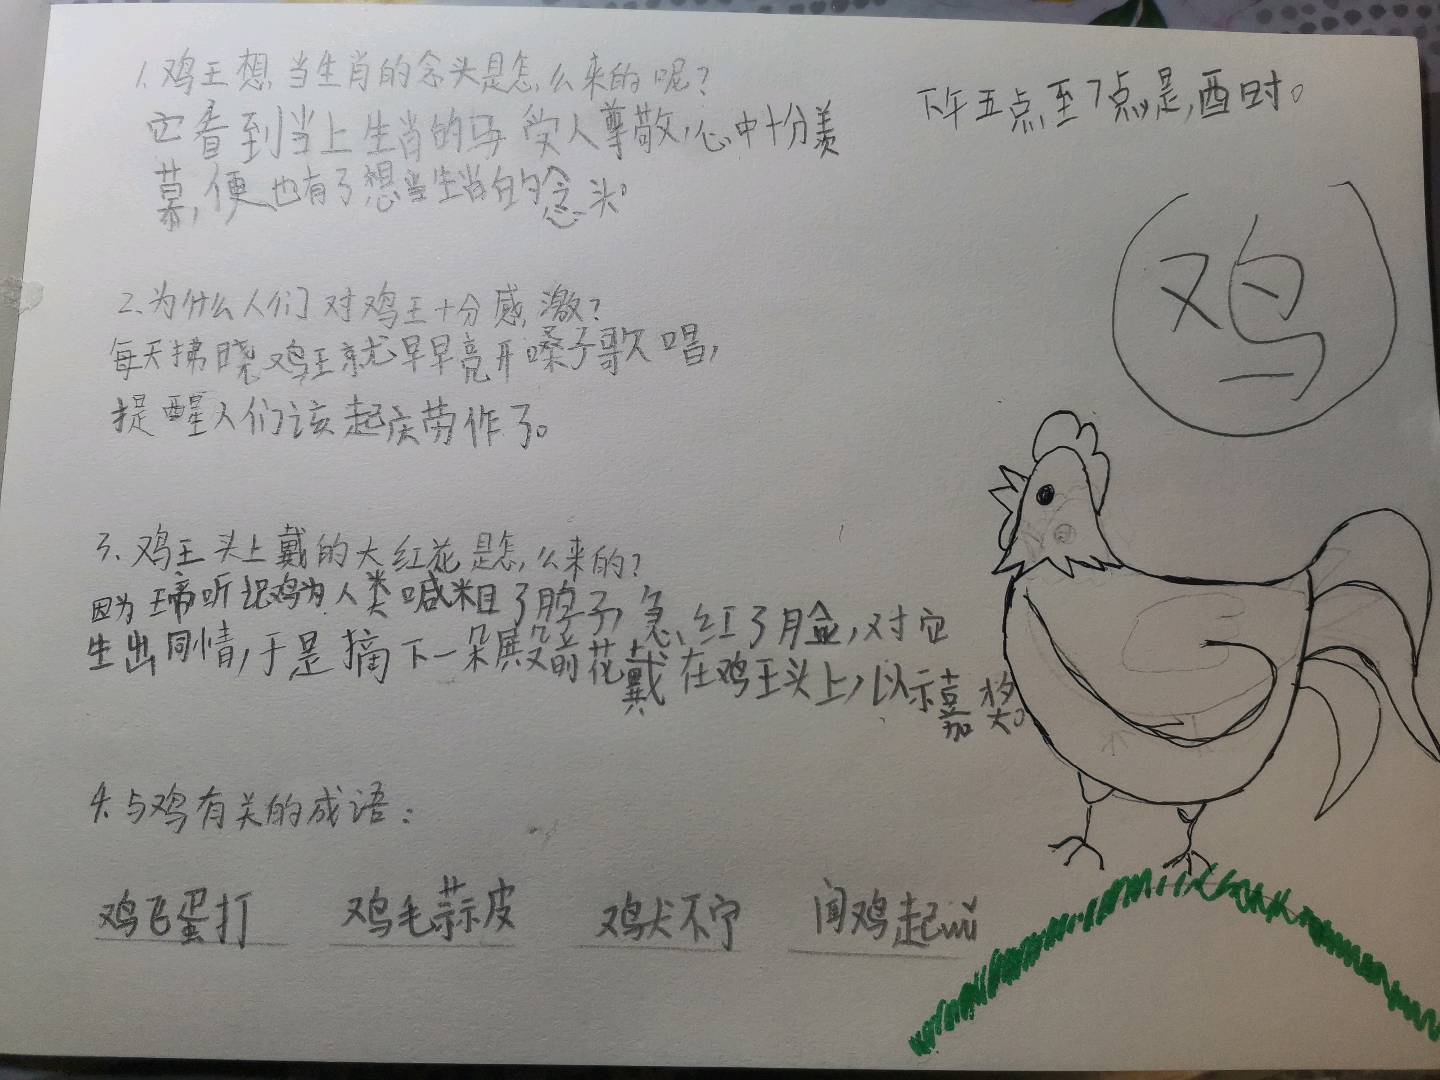 1.鸡王想当生肖的念头是怎么来的呢?
它看到当上生肖的马受人尊敬,心中十分羡
慕,便也有了想当生肖的念头。
下午五点至7点是酉时。
鸡
2.为什么人们对鸡王十分感激?
每天拂晓鸡王就早早亮开嗓子歌唱,
提醒人们该起床劳作了。
3.鸡王头上戴的大红花是怎么来的?
因为玉帝听说鸡为人类喊粗了脖子,急红了脸,对它
生出同情,于是摘下一朵殿前花戴在鸡王头上,以示嘉奖。
4.与鸡有关的成语:
鸡飞蛋打 鸡毛蒜皮 鸡犬不宁 闻鸡起wǔ